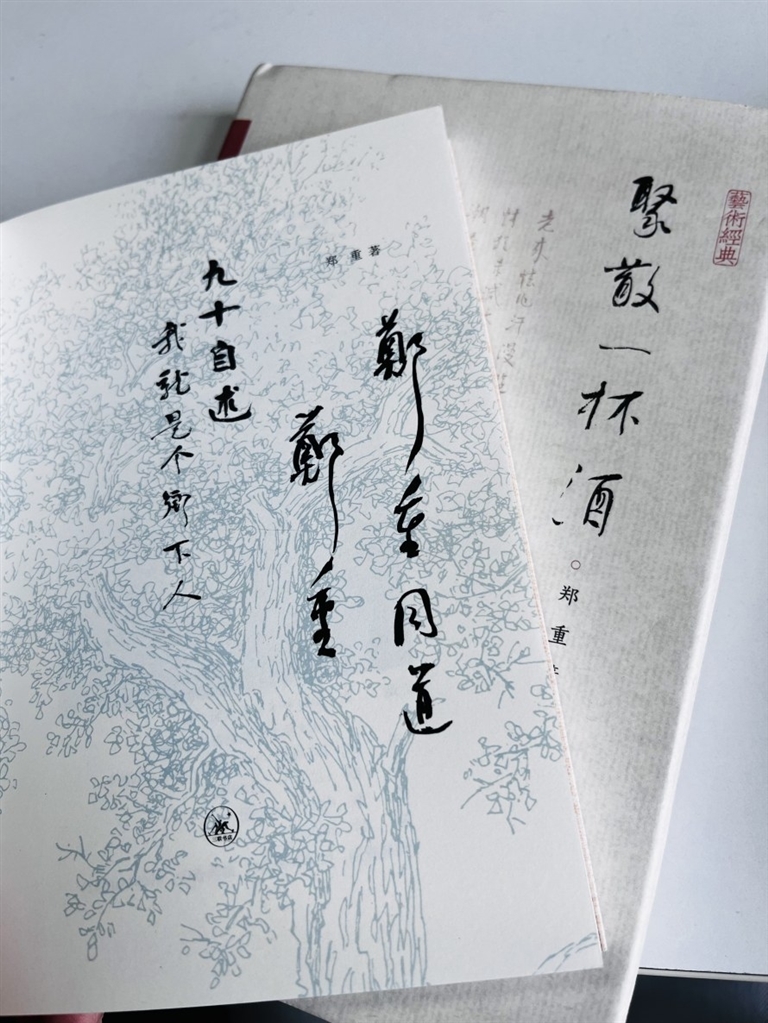 郑重著
鄭重同道
鄭重
九十自述
我就是个鄉下人
三联书店
藝術經典
聚散一杯酒
○郑重